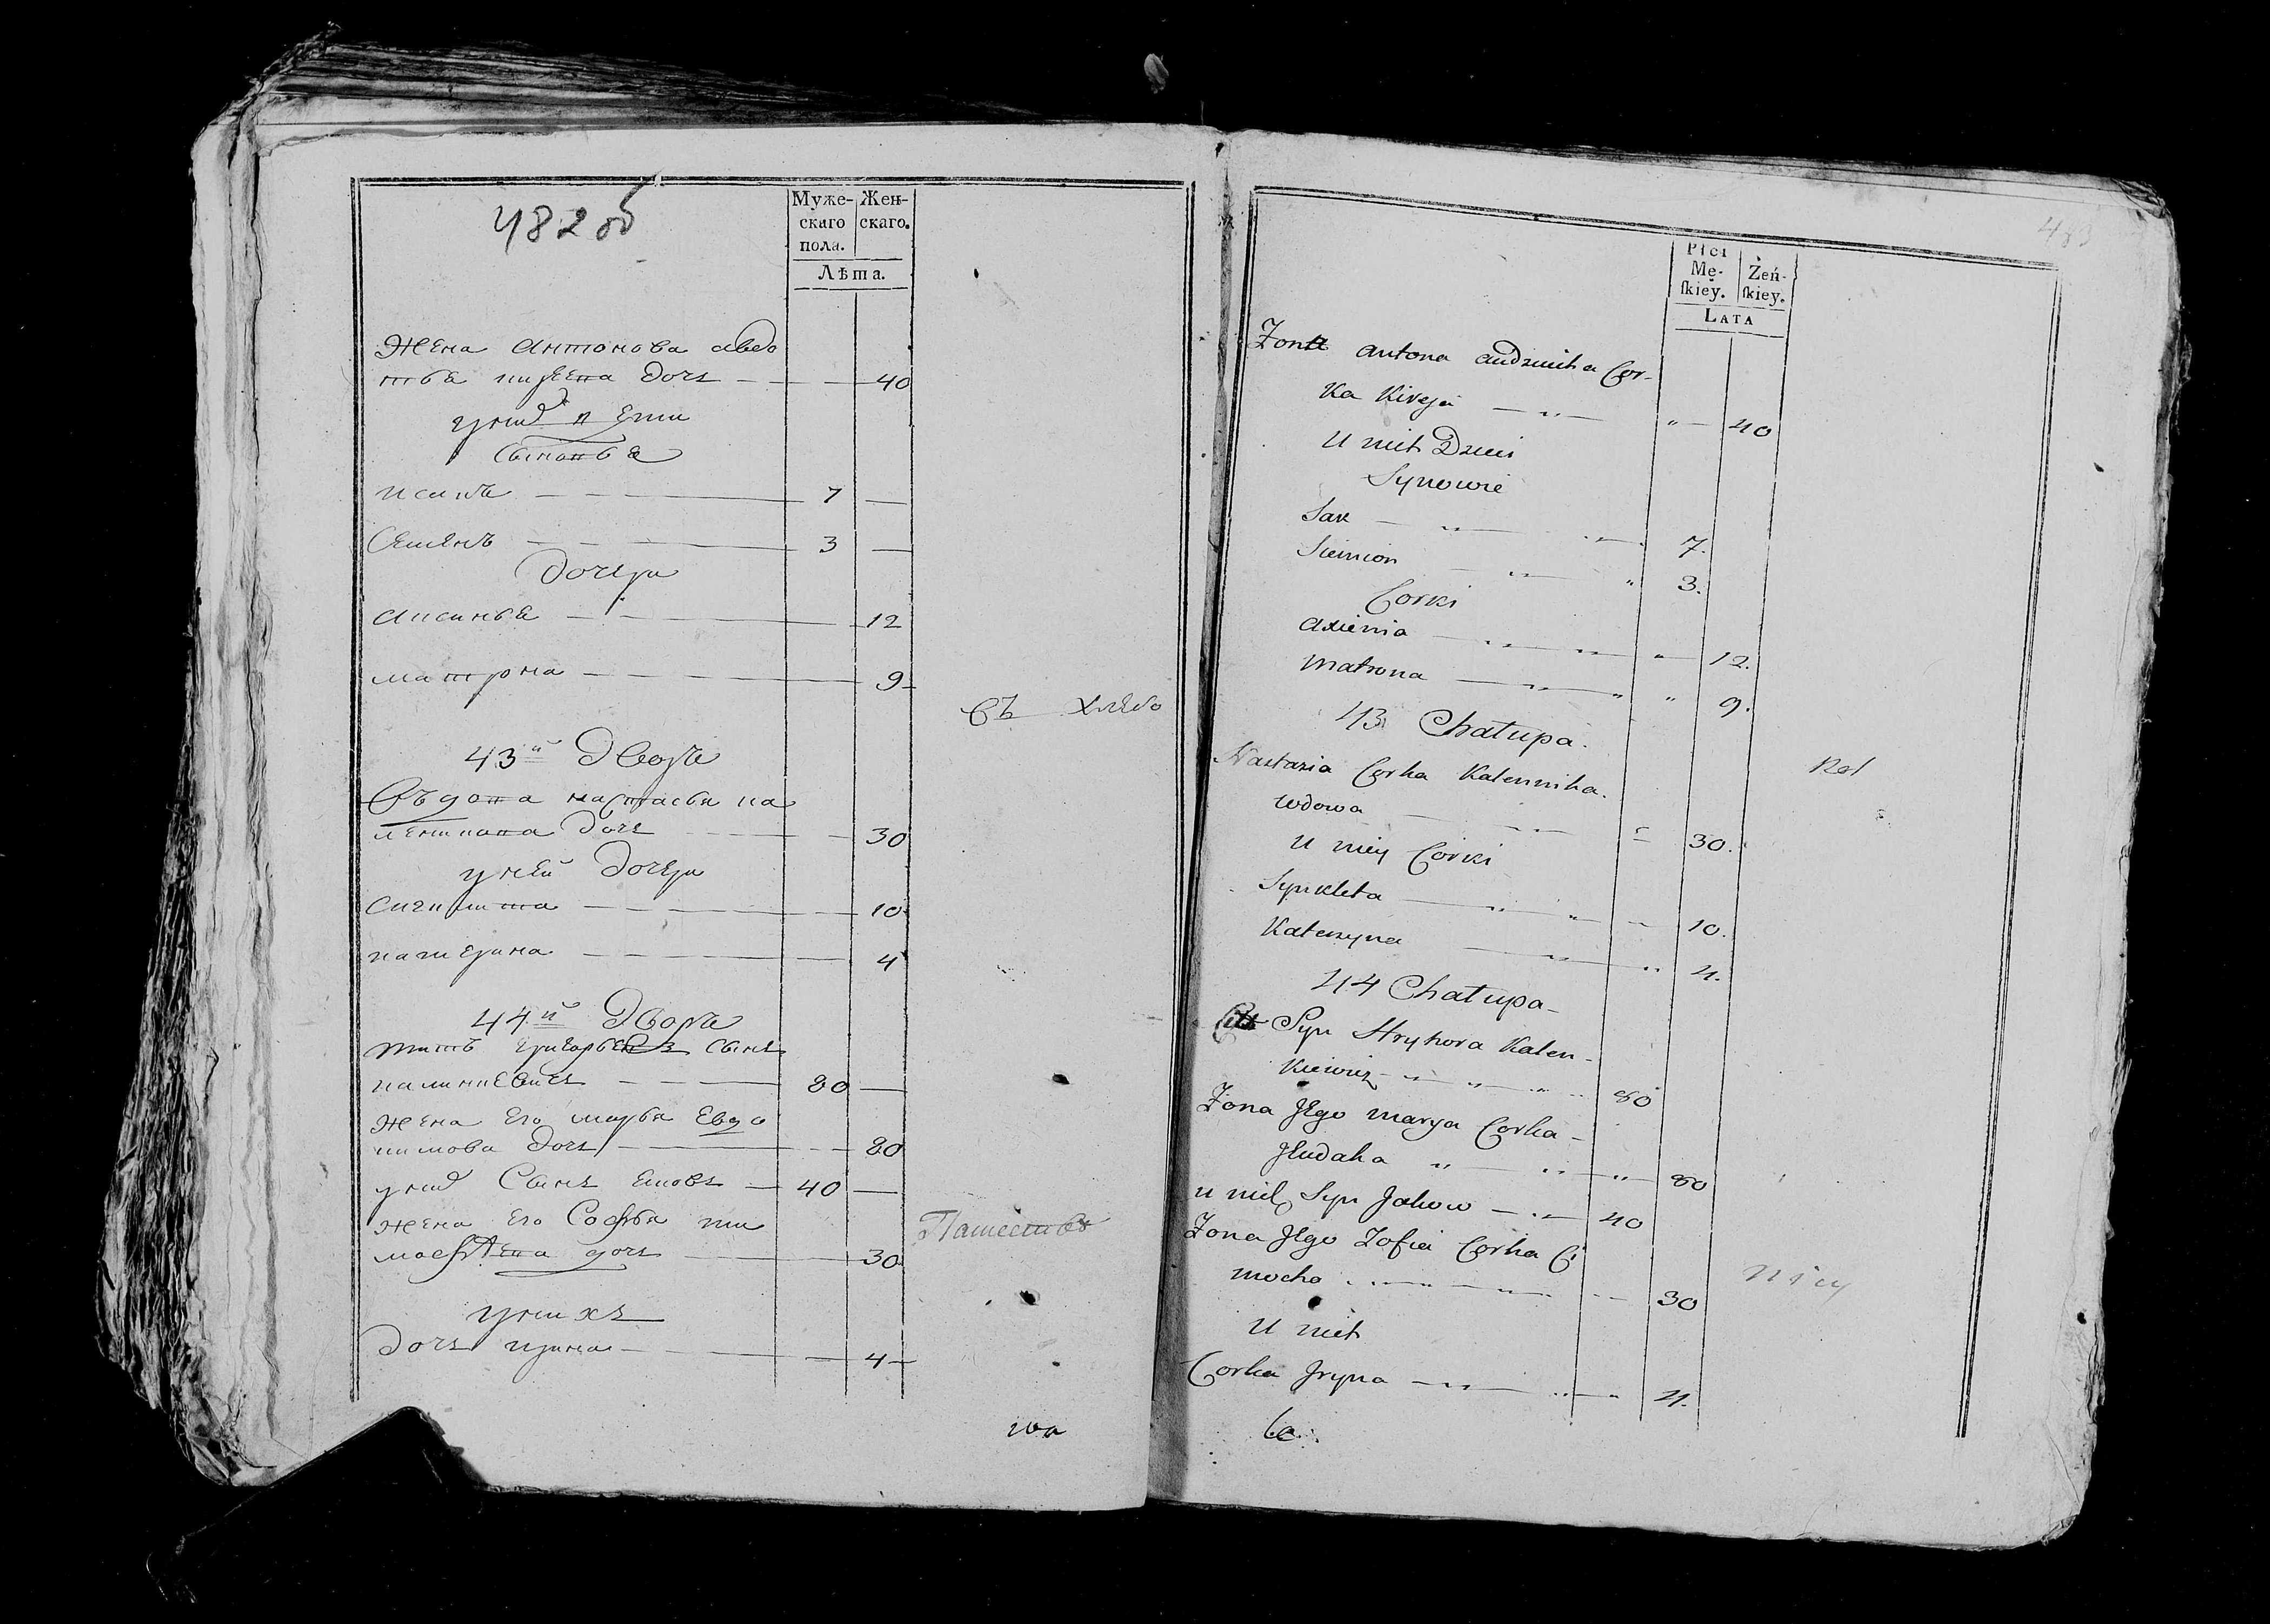 482 об
Муже-
скаго
пола.
Жен-
скаго.
Лѣта.
Жена Антонова авдо
тья кирѣева дочь — 40
у них дети
Сыновья
исакъ — 7 —
Семенъ — 3 —
дочери
аксинья — 12
матрона — 9
43й Дворъ
Въдова настасья ка
леникова дочь — 30
у ней дочери
катерина — 4
44й Дворъ
титъ григорьевъ сынъ
калинкевичъ — 80 —
жена его марья Евдо
кимова дочь — 80
у них Сынъ яковъ — 40 —
жена его Софья ти
мофѣева дочь — 30
у них
дочь ирина — 4
съ хлебо
483
Płci
Mę-
ſkiey.
Żeń-
ſkiey.
Lata
Zona antona audziuika Cor-
ka Kireja — 40
U nich Dzieci
Synowie
Sak — 7.
Siemion — 3.
Corki
axienia — 12.
Matrona — 9.
43 Chałupa.
Nastazia Corka Kalennika.
wdowa — 30.
U niey Corki
Synkleta — 10.
Katerzyna — 4.
44 Chałupa
Syn Hryhora Kalen-
kiewicz — 80
Zona Jego marya Corka
Jludaka — 80
u nich Syn Jakow — 40
Zona Jego Zofia Corka Ci
mocha — 30
U nich
Corka Jryna — 4.
Rol